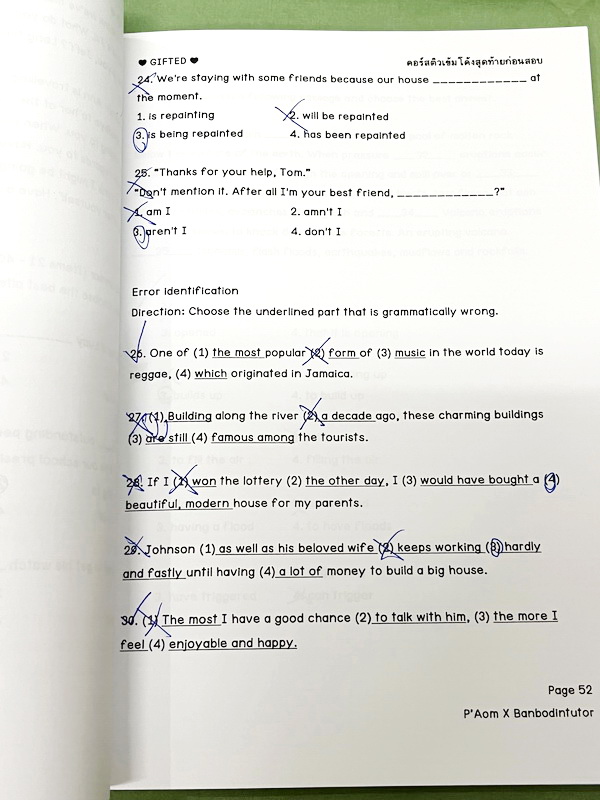 ♥ GIFTED ♥ คอร์สติวเข้มโค้งสุดท้ายก่อนสอบ
24. We're staying with some friends because our house ____________ at
the moment.
1. is repainting 2. will be repainted
3. is being repainted 4. has been repainted
25. "Thanks for your help, Tom."
"Don't mention it. After all I'm your best friend, ____________?"
1. am I 2. amn't I
3. aren't I 4. don't I
Error Identification
Direction: Choose the underlined part that is grammatically wrong.
26. One of (1) the most popular (2) form of (3) music in the world today is
reggae, (4) which originated in Jamaica.
27. (1) Building along the river (2) a decade ago, these charming buildings
(3) are still (4) famous among the tourists.
28. If I (1) won the lottery (2) the other day, I (3) would have bought a (4)
beautiful, modern house for my parents.
29. Johnson (1) as well as his beloved wife (2) keeps working (3) hardly
and fastly until having (4) a lot of money to build a big house.
30. (1) The most I have a good chance (2) to talk with him, (3) the more I
feel (4) enjoyable and happy.
Page 52
P'Aom X Banbodintutor